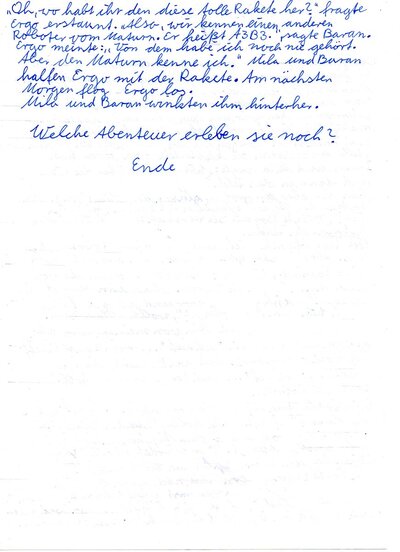 „Oh, wo habt ihr den diese tolle Rakete her?" fragte
Ergo erstaunt. „Also, wir kennen einen anderen
Roboter vom Maturn. Er heißt A3B3.", sagte Baran.
Ergo meinte: „Von dem habe ich noch nie gehört.
Aber den Maturn kenne ich." Mila und Baran
halfen Ergo mit der Rakete. Am nächsten
Morgen flog Ergo los.
Mila und Baran winkten ihm hinterher.
Welche Abenteuer erleben sie noch?
Ende